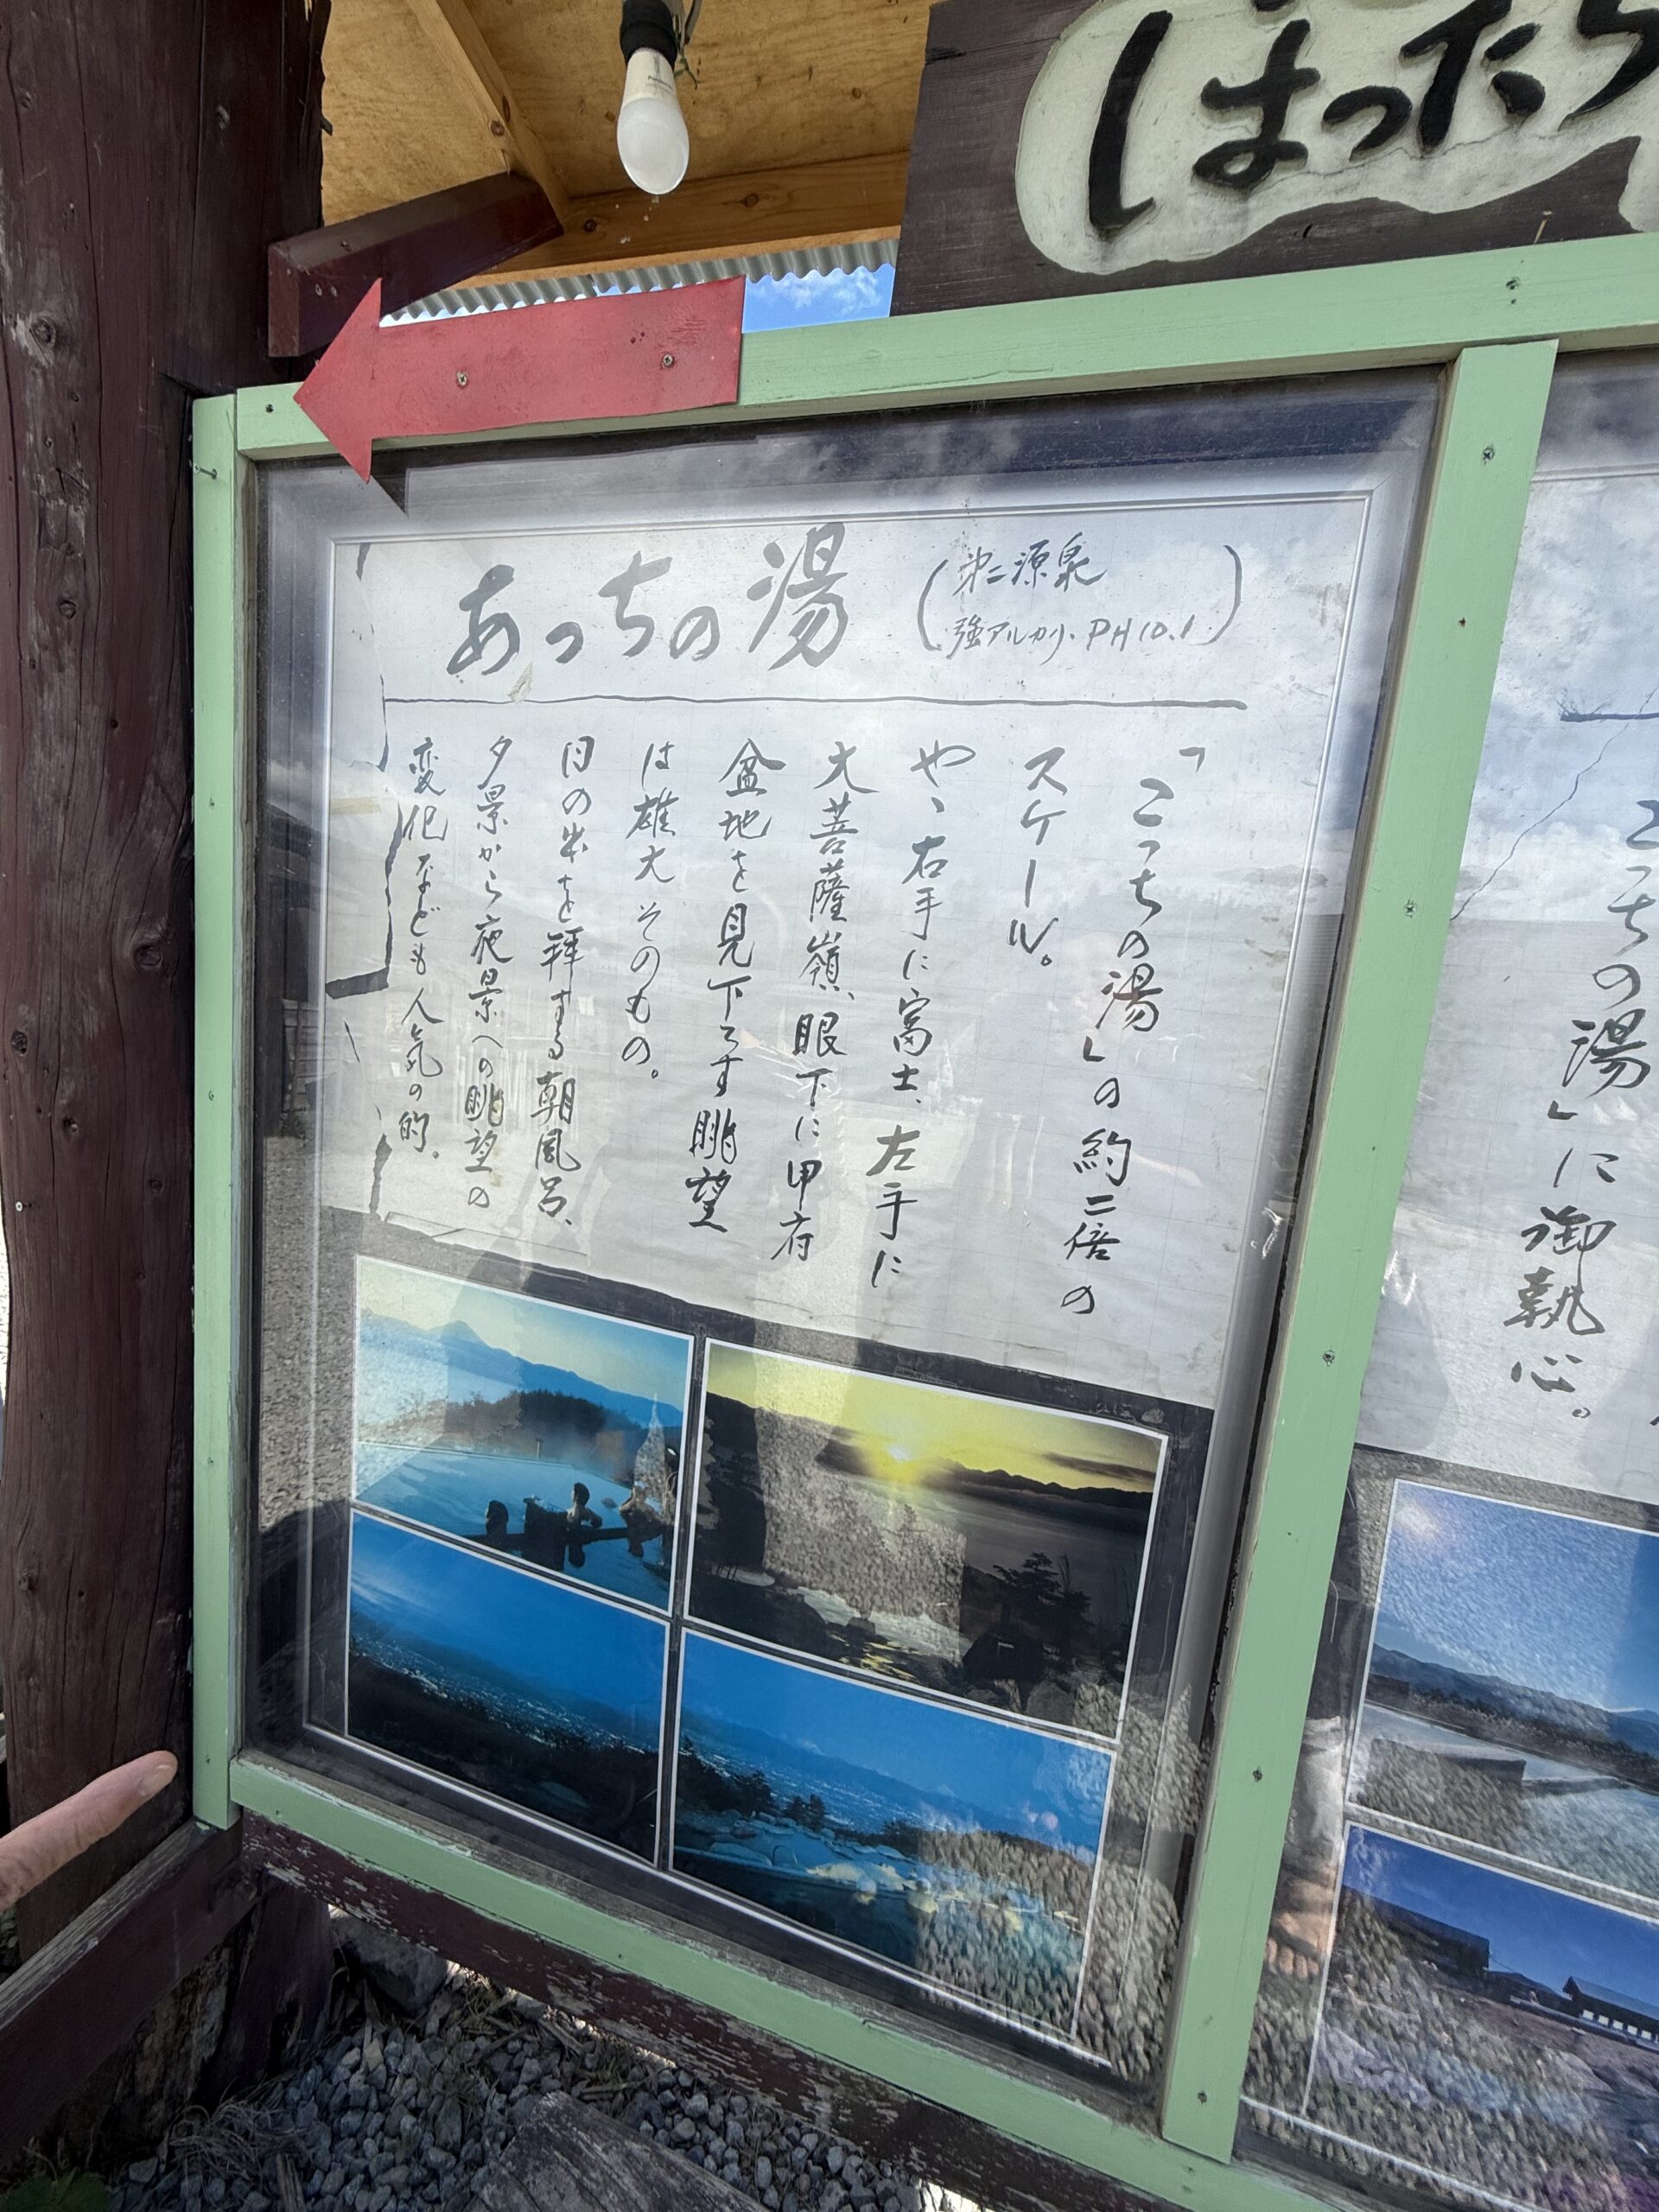 ほったら
あっちの湯
(第二源泉
強アルカリ・PH10.1)
「こっちの湯」の約二倍の
スケール。
やゝ右手に富士、左手に
大菩薩嶺、眼下に甲府
盆地を見下ろす眺望
は雄大そのもの。
日の出を拝する朝風呂、
夕景から夜景への眺望の
変化なども人気の的。
こっちの湯」に御執
心。